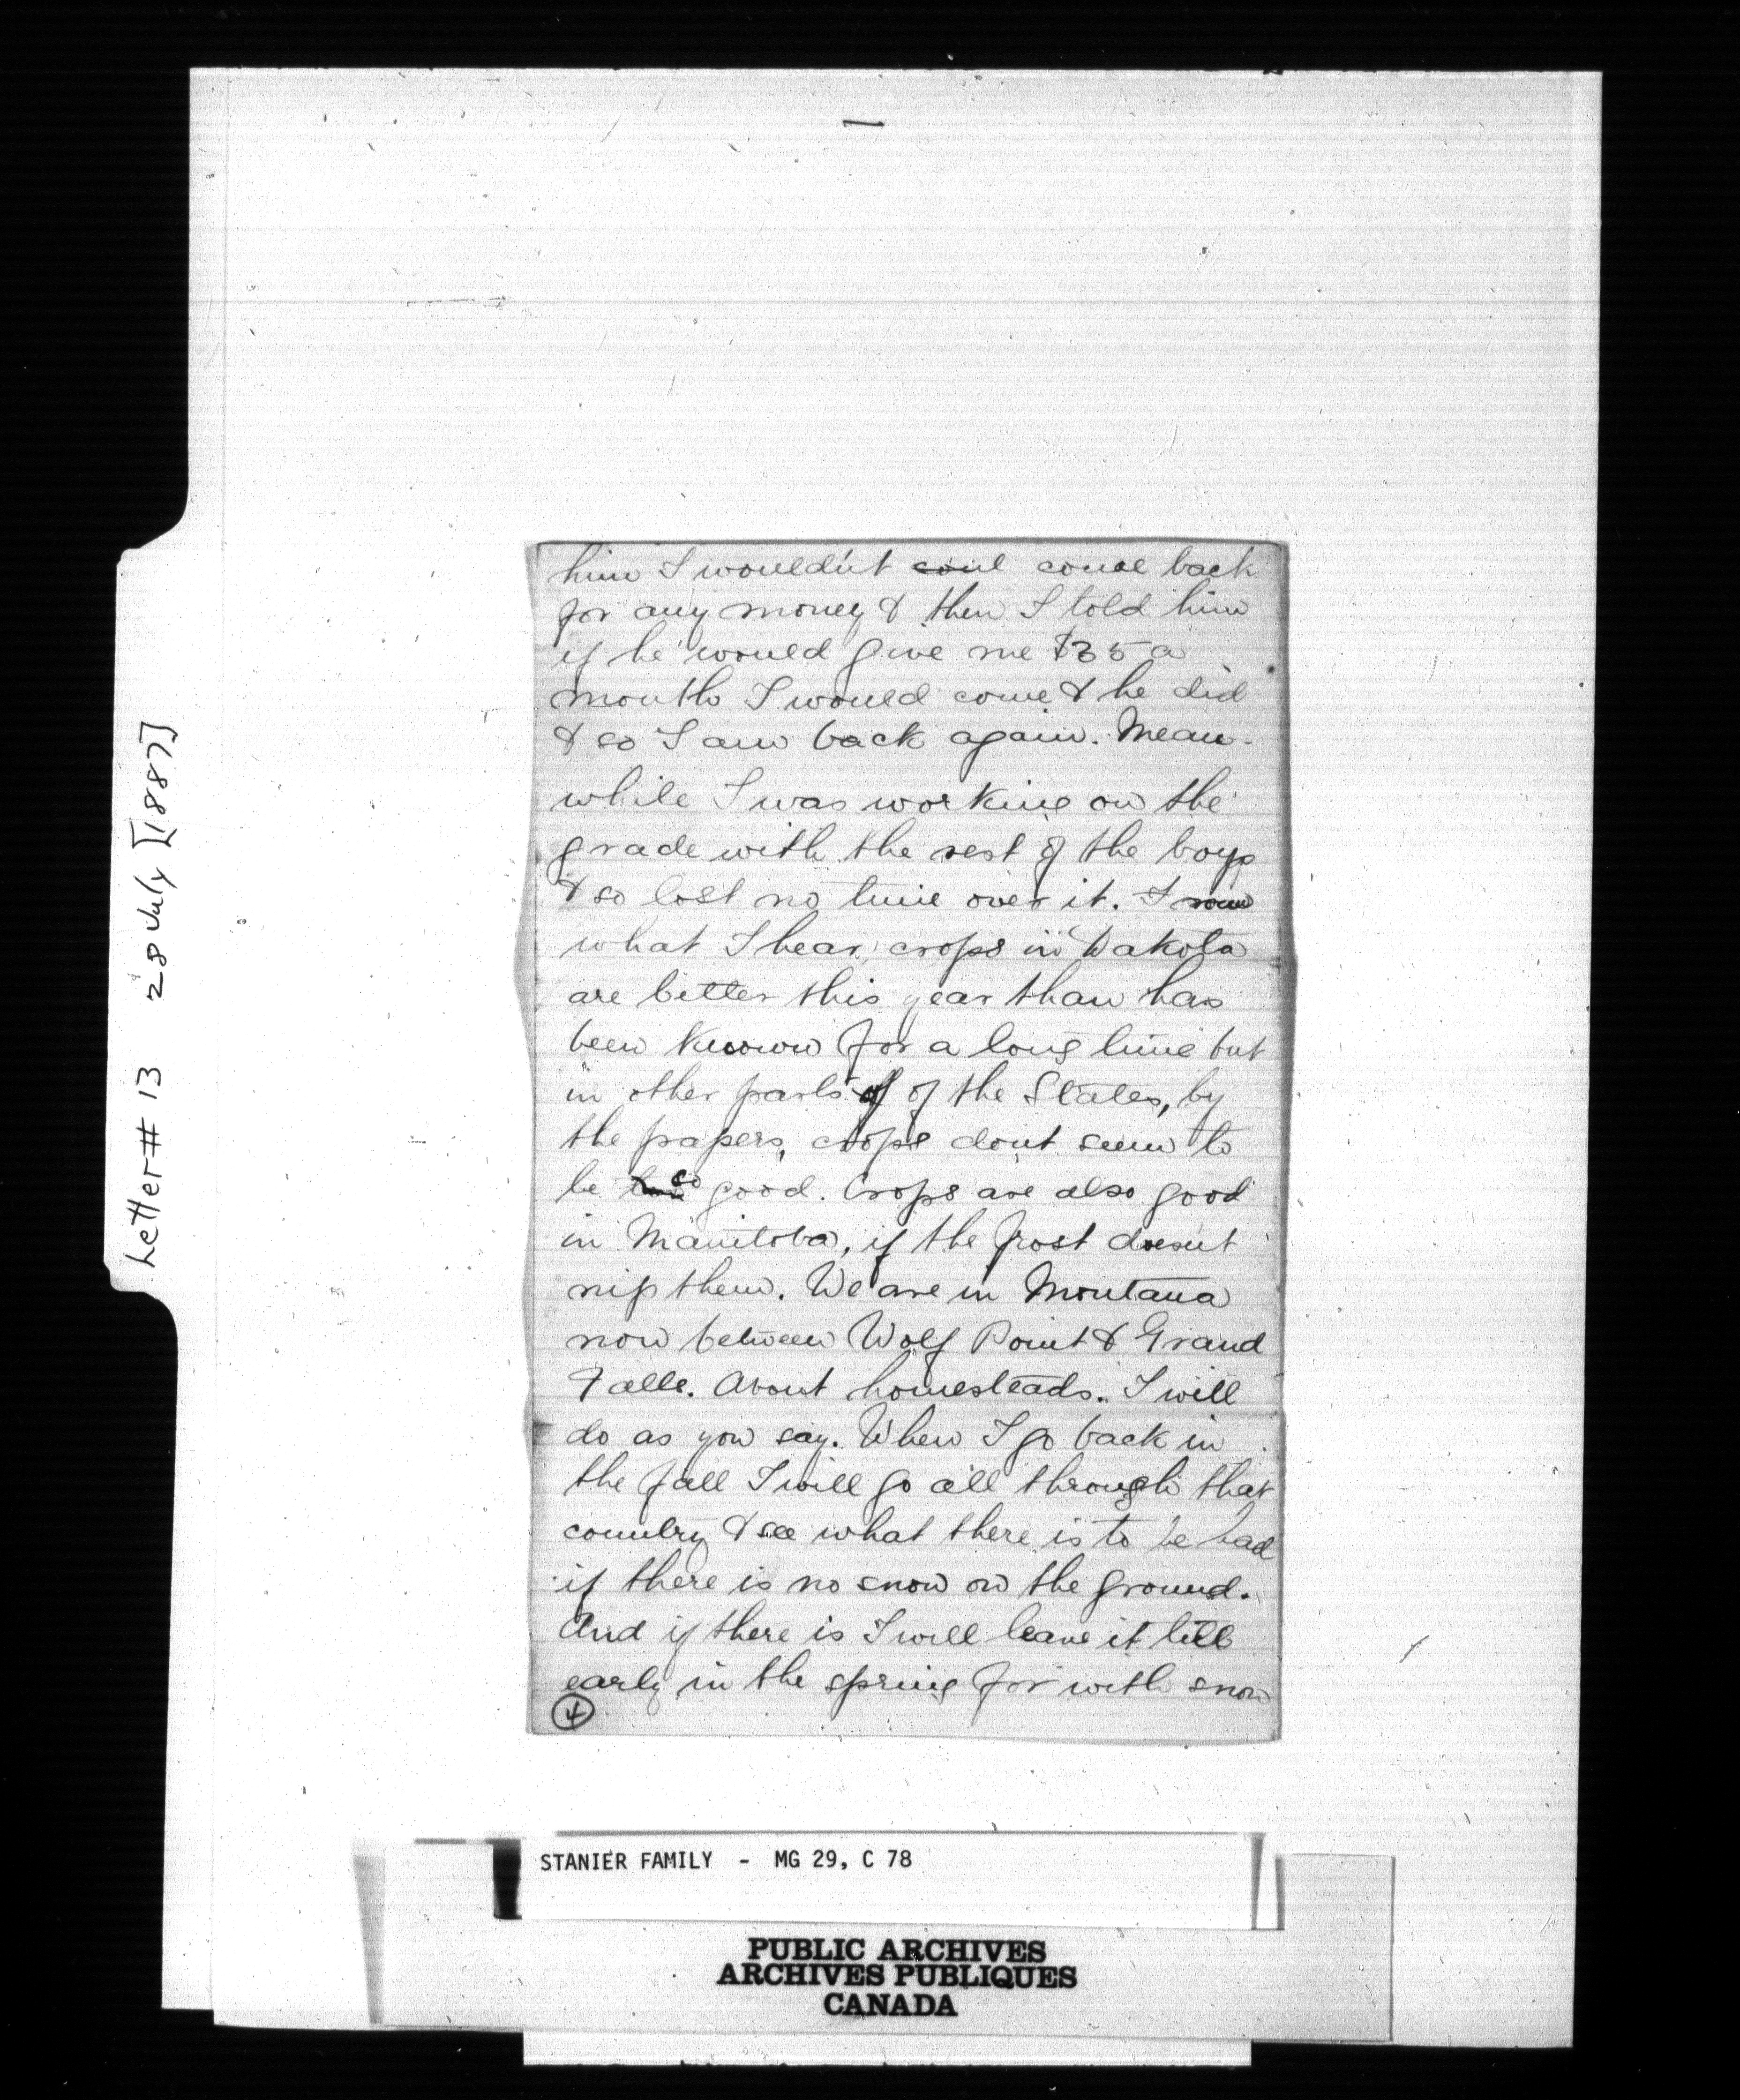 Letter # 13 28 July [1887]
him I wouldn't come back
for any money & then I told him
if he would give me $35 a
month I would come & he did
& so I am back again. Mean-
while I was working on the
grade with the rest of the boys
& so lost no time over it. From
what I hear, crops in Dakota
are better this year than has
been known for a long time but
in other parts of of the States, by
the papers, crops dont seem to
be so good. Crops are also good
in Manitoba, if the frost doesn't
nip them. We are in Montana
now between Wolf Point & Grand
Falls. About homesteads. I will
do as you say. When I go back in
the fall I will go all through that
country & see what there is to be had
if there is no snow on the ground.
And if there is I will leave it till
early in the spring for with snow
4
STANIER FAMILY - MG 29, C 78
PUBLIC ARCHIVES
ARCHIVES PUBLIQUES
CANADA